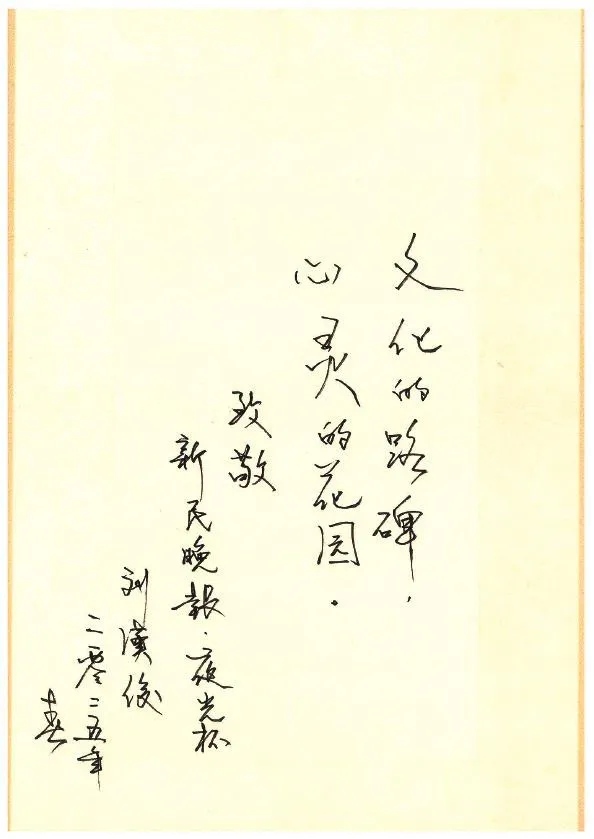 文化的路碑，
心灵的花园。
致敬
新民晚報·夜光杯
刘漢俊
二零二五年
春